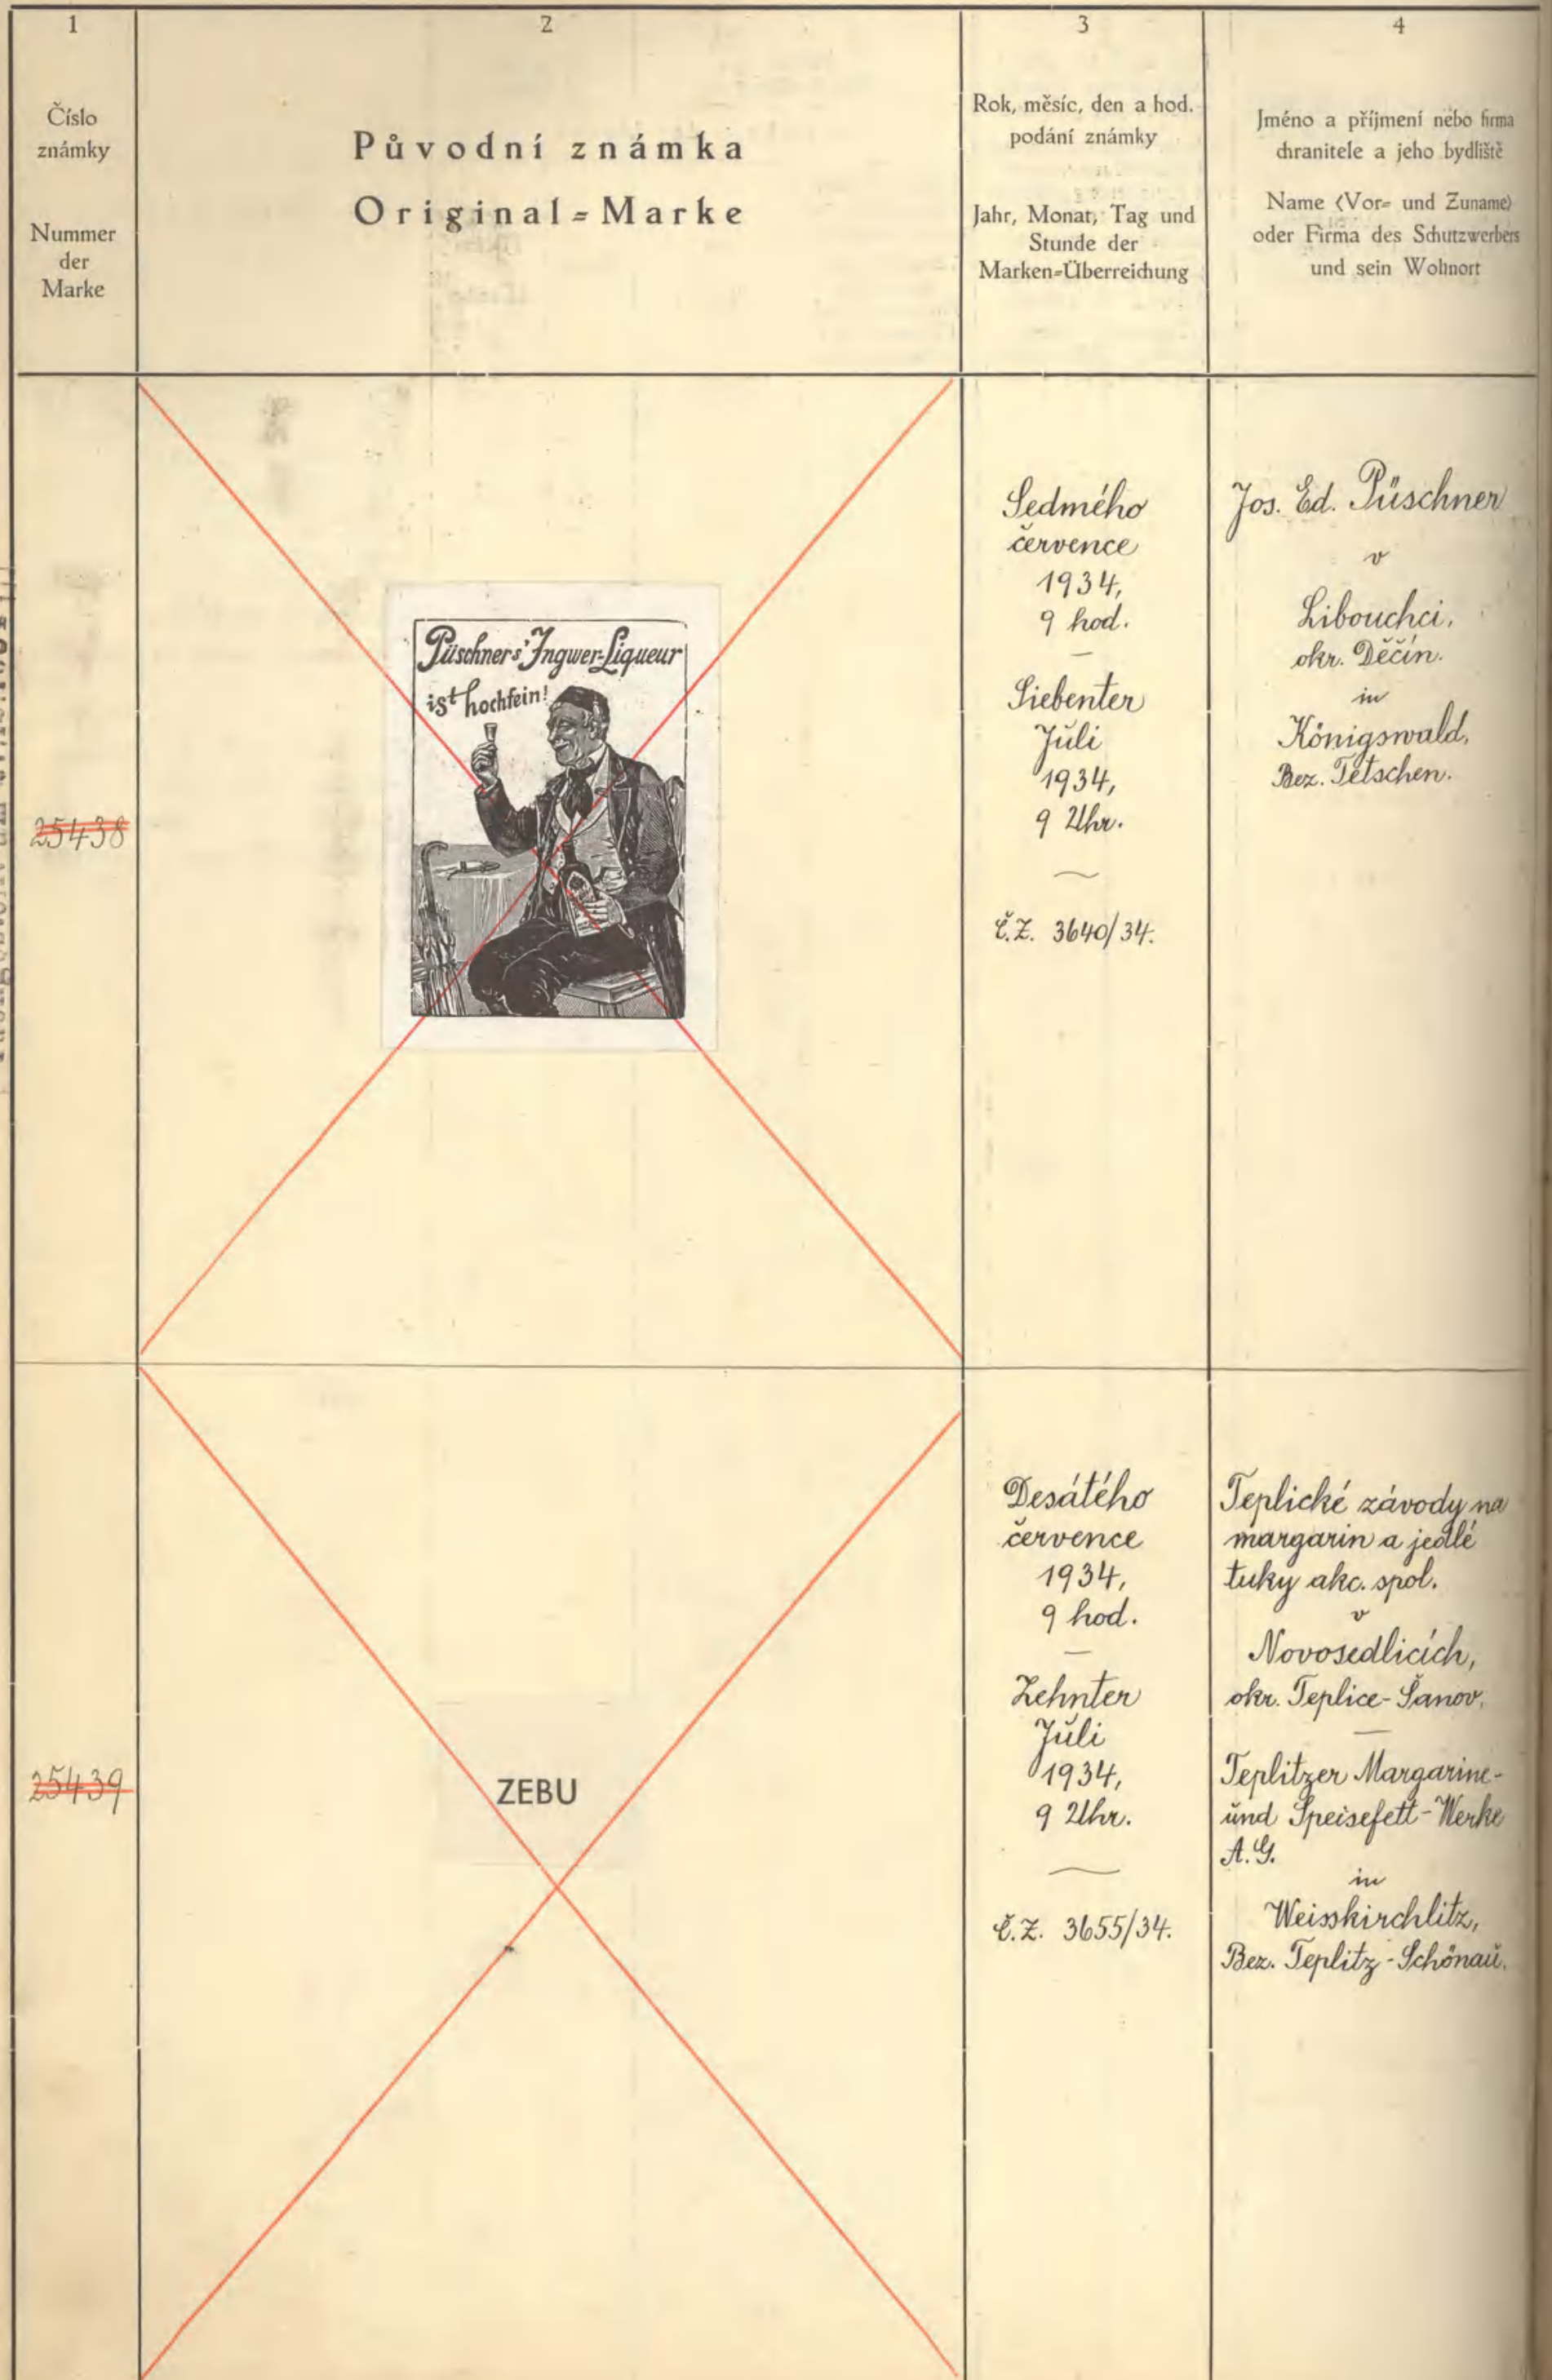 1
Číslo
známky
Nummer
der
Marke
2
Původní známka
Original=Marke
3
Rok, měsíc, den a hod.
podání známky
Jahr, Monat, Tag und
Stunde der
Marken=Überreichung
4
Jméno a příjmení nebo firma
chranitele a jeho bydliště
Name (Vor= und Zuname)
oder Firma des Schutzwerbers
und sein Wohnort
25438
Püschners' Ingwer-Liqueur
ist hochfein!
Sedmého
července
1934,
9 hod.
—
Siebenter
Juli
1934,
9 Uhr.
Č.Z. 3640/34.
Jos. Ed. Püschner
v
Libouchci,
okr. Děčín.
in
Königswald,
Bez. Tetschen.
25439
ZEBU
Desátého
července
1934,
9 hod.
—
Zehnter
Juli
1934,
9 Uhr.
Č.Z. 3655/34.
Teplické závody na
margarin a jedlé
tuky akc. spol.
v
Novosedlicích,
okr. Teplice-Šanov.
—
Teplitzer Margarine-
und Speisefett-Werke
A.G.
in
Weisskirchlitz,
Bez. Teplitz-Schönau.